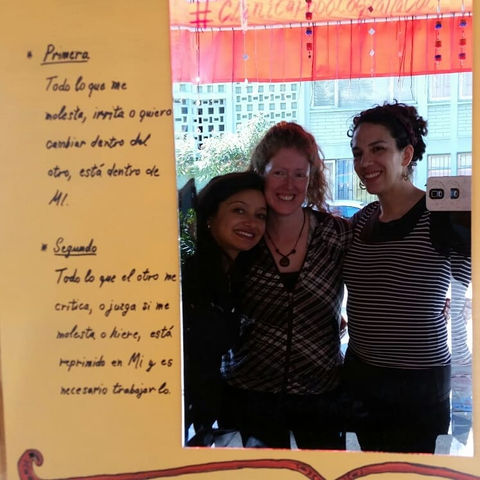 * Primera
Todo lo que me
molesta, irrita o quiero
cambiar dentro del
otro, está dentro de
MI.
* Segundo
Todo lo que el otro me
critica, o juzga si me
molesta o hiere, está
reprimido en Mi y es
necesario trabajarlo.